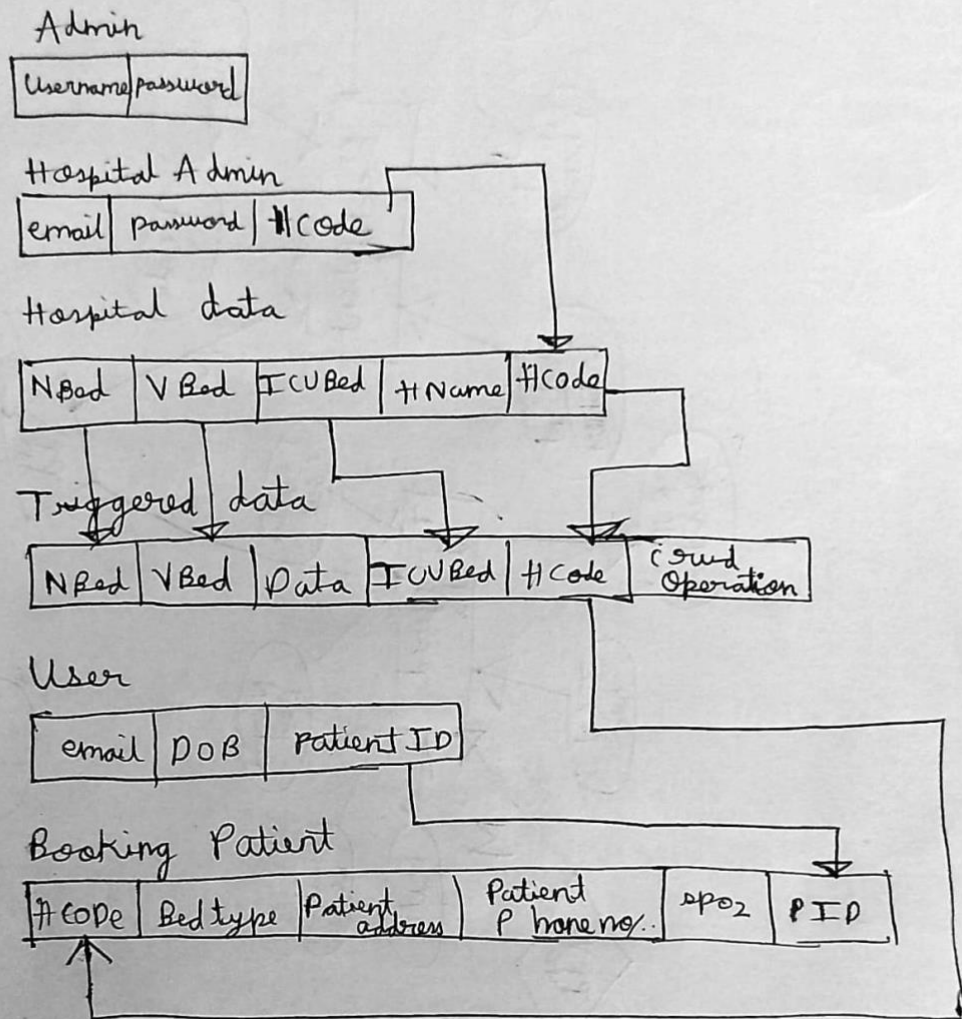 Admin
Username password
Hospital Admin
email password HCode
Hospital data
NBed VBed ICUBed HName HCode
Triggered data
NBed VBed Data ICUBed HCode Crud
Operation
User
email DOB Patient ID
Booking Patient
HCODe Bed type Patient
address Patient
Phone no.. SPO2 PID